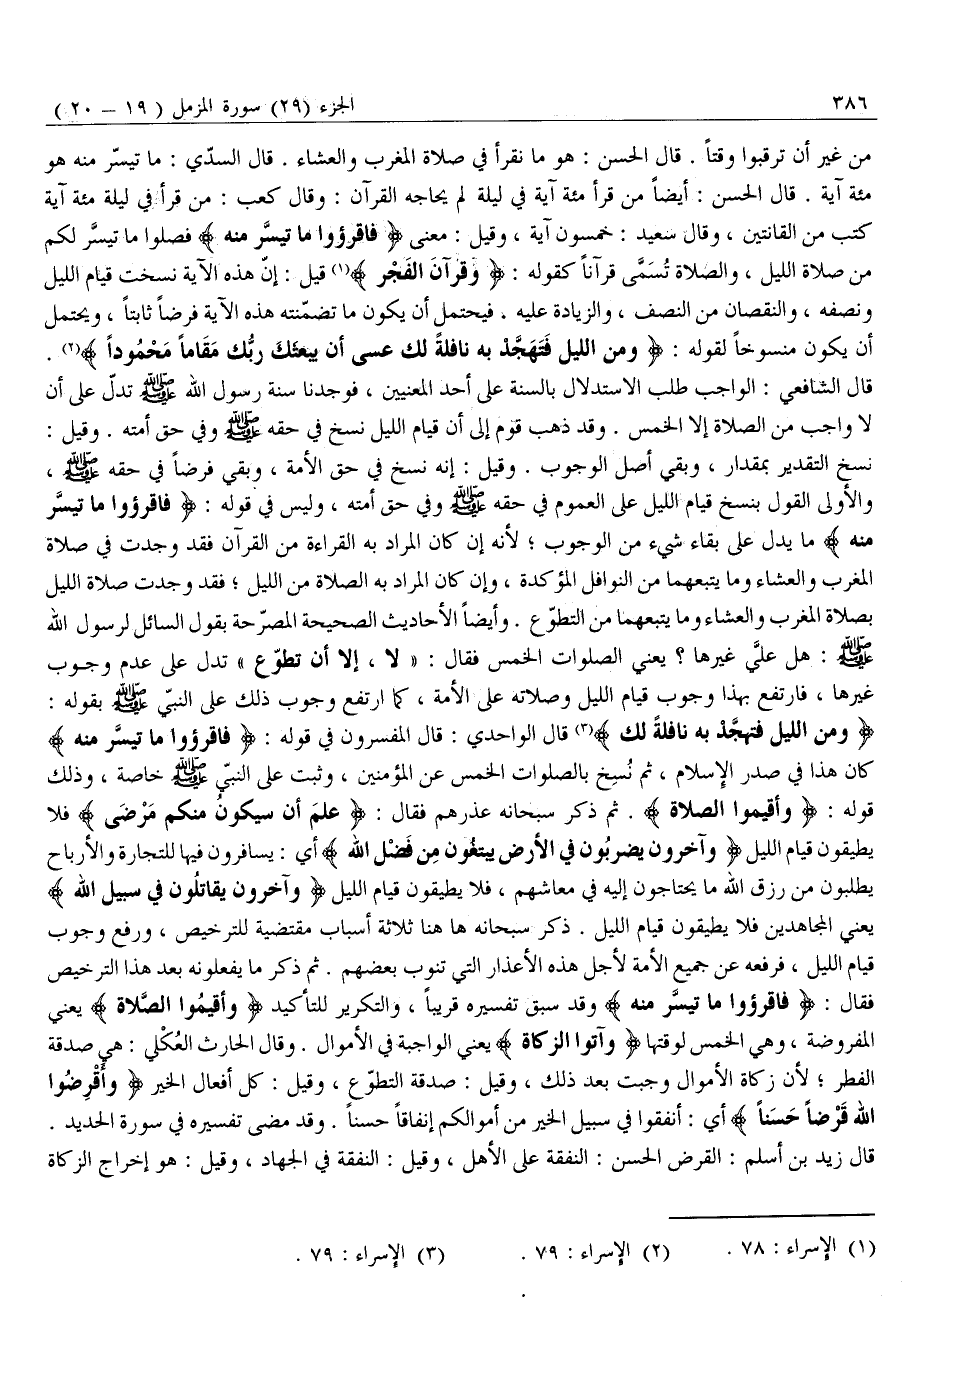 ٣٨٦ الجزء (٢٩) سورة المزمل ( ١٩ – ٢٠ )
من غير أن ترقبوا وقتاً . قال الحسن : هو ما نقرأ في صلاة المغرب والعشاء . قال السدّي : ما تيسّر منه هو
مئة آية . قال الحسن : أيضاً من قرأ مئة آية في ليلة لم يحاجه القرآن : وقال كعب : من قرأ في ليلة مئة آية
كتب من القانتين ، وقال سعيد : خمسون آية ، وقيل : معنى ﴿ فاقرؤوا ما تيسَّر منه ﴾ فصلوا ما تيسَّر لكم
من صلاة الليل ، والصلاة تُسَمَّى قرآناً كقوله : ﴿ وَقرآنَ الفَجْر ﴾(١) قيل : إنّ هذه الآية نسخت قيام الليل
ونصفه ، والنقصان من النصف ، والزيادة عليه . فيحتمل أن يكون ما تضمّنته هذه الآية فرضاً ثابتاً ، ويحتمل
أن يكون منسوخاً لقوله : ﴿ ومن الليل فَتَهجَّد به نافلةً لك عسى أن يبعثَكَ ربُّك مَقَاماً مَحْمُوداً ﴾(٢) .
قال الشافعي : الواجب طلب الاستدلال بالسنة على أحد المعنيين ، فوجدنا سنة رسول الله ﷺ تدلّ على أن
لا واجب من الصلاة إلا الخمس . وقد ذهب قوم إلى أن قيام الليل نسخ في حقه ﷺ وفي حق أمته . وقيل :
نسخ التقدير بمقدار ، وبقي أصل الوجوب . وقيل : إنه نسخ في حق الأمة ، وبقي فرضاً في حقه ﷺ ،
والأولى القول بنسخ قيام الليل على العموم في حقه ﷺ وفي حق أمته ، وليس في قوله : ﴿ فاقرؤوا ما تيسَّر
منه ﴾ ما يدل على بقاء شيء من الوجوب ؛ لأنه إن كان المراد به القراءة من القرآن فقد وجدت في صلاة
المغرب والعشاء وما يتبعهما من النوافل المؤكدة ، وإن كان المراد به الصلاة من الليل ؛ فقد وجدت صلاة الليل
بصلاة المغرب والعشاء وما يتبعهما من التطوّع . وأيضاً الأحاديث الصحيحة المصرّحة بقول السائل لرسول الله
ﷺ : هل عليَّ غيرها ؟ يعني الصلوات الخمس فقال : « لا ، إلا أن تطوّع » تدل على عدم وجوب
غيرها ، فارتفع بهذا وجوب قيام الليل وصلاته على الأمة ، كما ارتفع وجوب ذلك على النبيّ ﷺ بقوله :
﴿ ومن الليل فتهجَّدْ به نافلةً لك ﴾(٣) قال الواحدي : قال المفسرون في قوله : ﴿ فاقرؤوا ما تيسَّر منه ﴾
كان هذا في صدر الإسلام ، ثم نُسِخ بالصلوات الخمس عن المؤمنين ، وثبت على النبيّ ﷺ خاصة ، وذلك
قوله : ﴿ وأقيموا الصلاة ﴾ . ثم ذكر سبحانه عذرهم فقال : ﴿ علمَ أن سيكونُ منكم مَرْضَى ﴾ فلا
يطيقون قيام الليل ﴿ وآخرون يضربُون في الأرض يبتغُون مِن فَضْل الله ﴾ أي : يسافرون فيها للتجارة والأرباح
يطلبون من رزق الله ما يحتاجون إليه في معاشهم ، فلا يطيقون قيام الليل ﴿ وآخرون يقاتلُون في سبيل الله ﴾
يعني المجاهدين فلا يطيقون قيام الليل . ذكر سبحانه ها هنا ثلاثة أسباب مقتضية للترخيص ، ورفع وجوب
قيام الليل ، فرفعه عن جميع الأمة لأجل هذه الأعذار التي تنوب بعضهم . ثم ذكر ما يفعلونه بعد هذا الترخيص
فقال : ﴿ فاقرؤوا ما تيسَّر منه ﴾ وقد سبق تفسيره قريباً ، والتكرير للتأكيد ﴿ وأقيمُوا الصَّلاة ﴾ يعني
المفروضة ، وهي الخمس لوقتها ﴿ وآتوا الزكاة ﴾ يعني الواجبة في الأموال . وقال الحارث العُكْلي : هي صدقة
الفطر ؛ لأن زكاة الأموال وجبت بعد ذلك ، وقيل : صدقة التطوّع ، وقيل : كل أفعال الخير ﴿ وأَقْرِضُوا
الله قَرْضاً حَسَناً ﴾ أي : أنفقوا في سبيل الخير من أموالكم إنفاقاً حسناً . وقد مضى تفسيره في سورة الحديد .
قال زيد بن أسلم : القرض الحسن : النفقة على الأهل ، وقيل : النفقة في الجهاد ، وقيل : هو إخراج الزكاة
(١) الإسراء : ٧٨ . (٢) الإسراء : ٧٩ . (٣) الإسراء : ٧٩ .